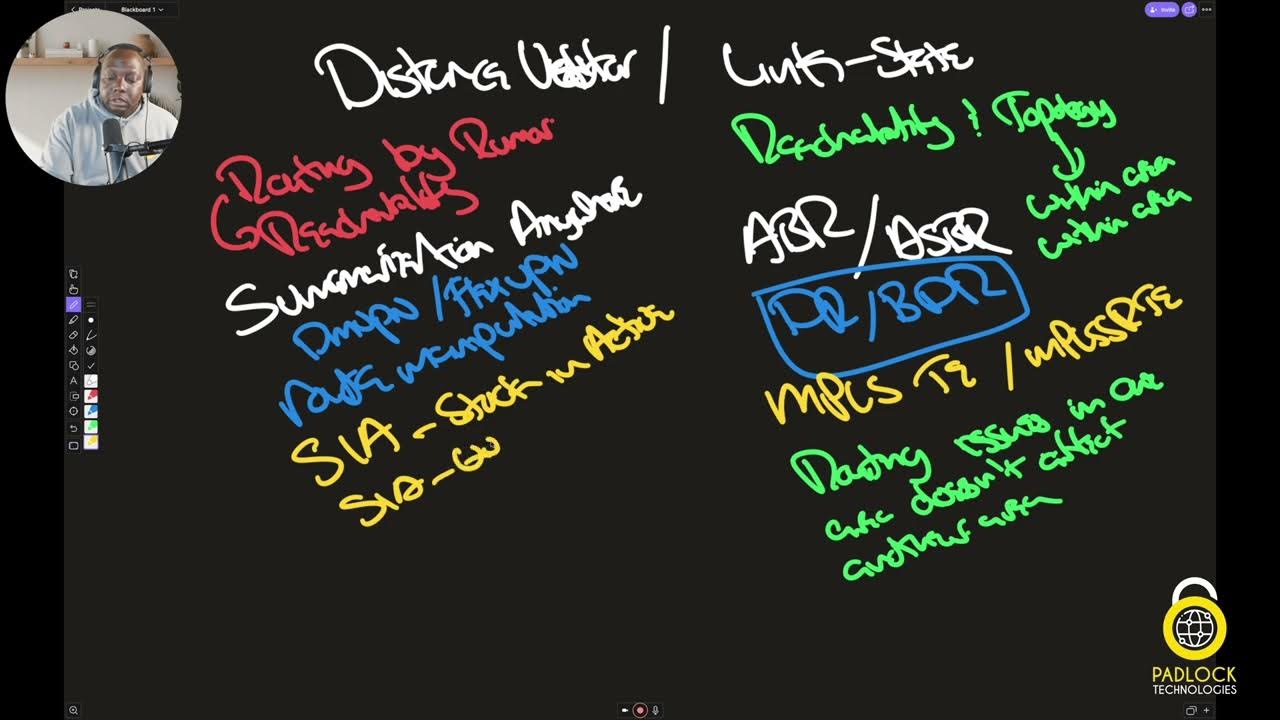 Projects
Blackboard 1
Invite
Distance Vector / Link-State
Routing by Rumor
Reachability
Summarization Anywhere
DMVPN / FlexVPN
Route manipulation
SIA - Stuck in Active
SIA - Qu
Reachability & Topology
within area
within area
ABR / ASBR
DR / BDR
MPLS TE / MPLSSRTE
Routing issues in one
area doesn't affect
another area
PADLOCK
TECHNOLOGIES